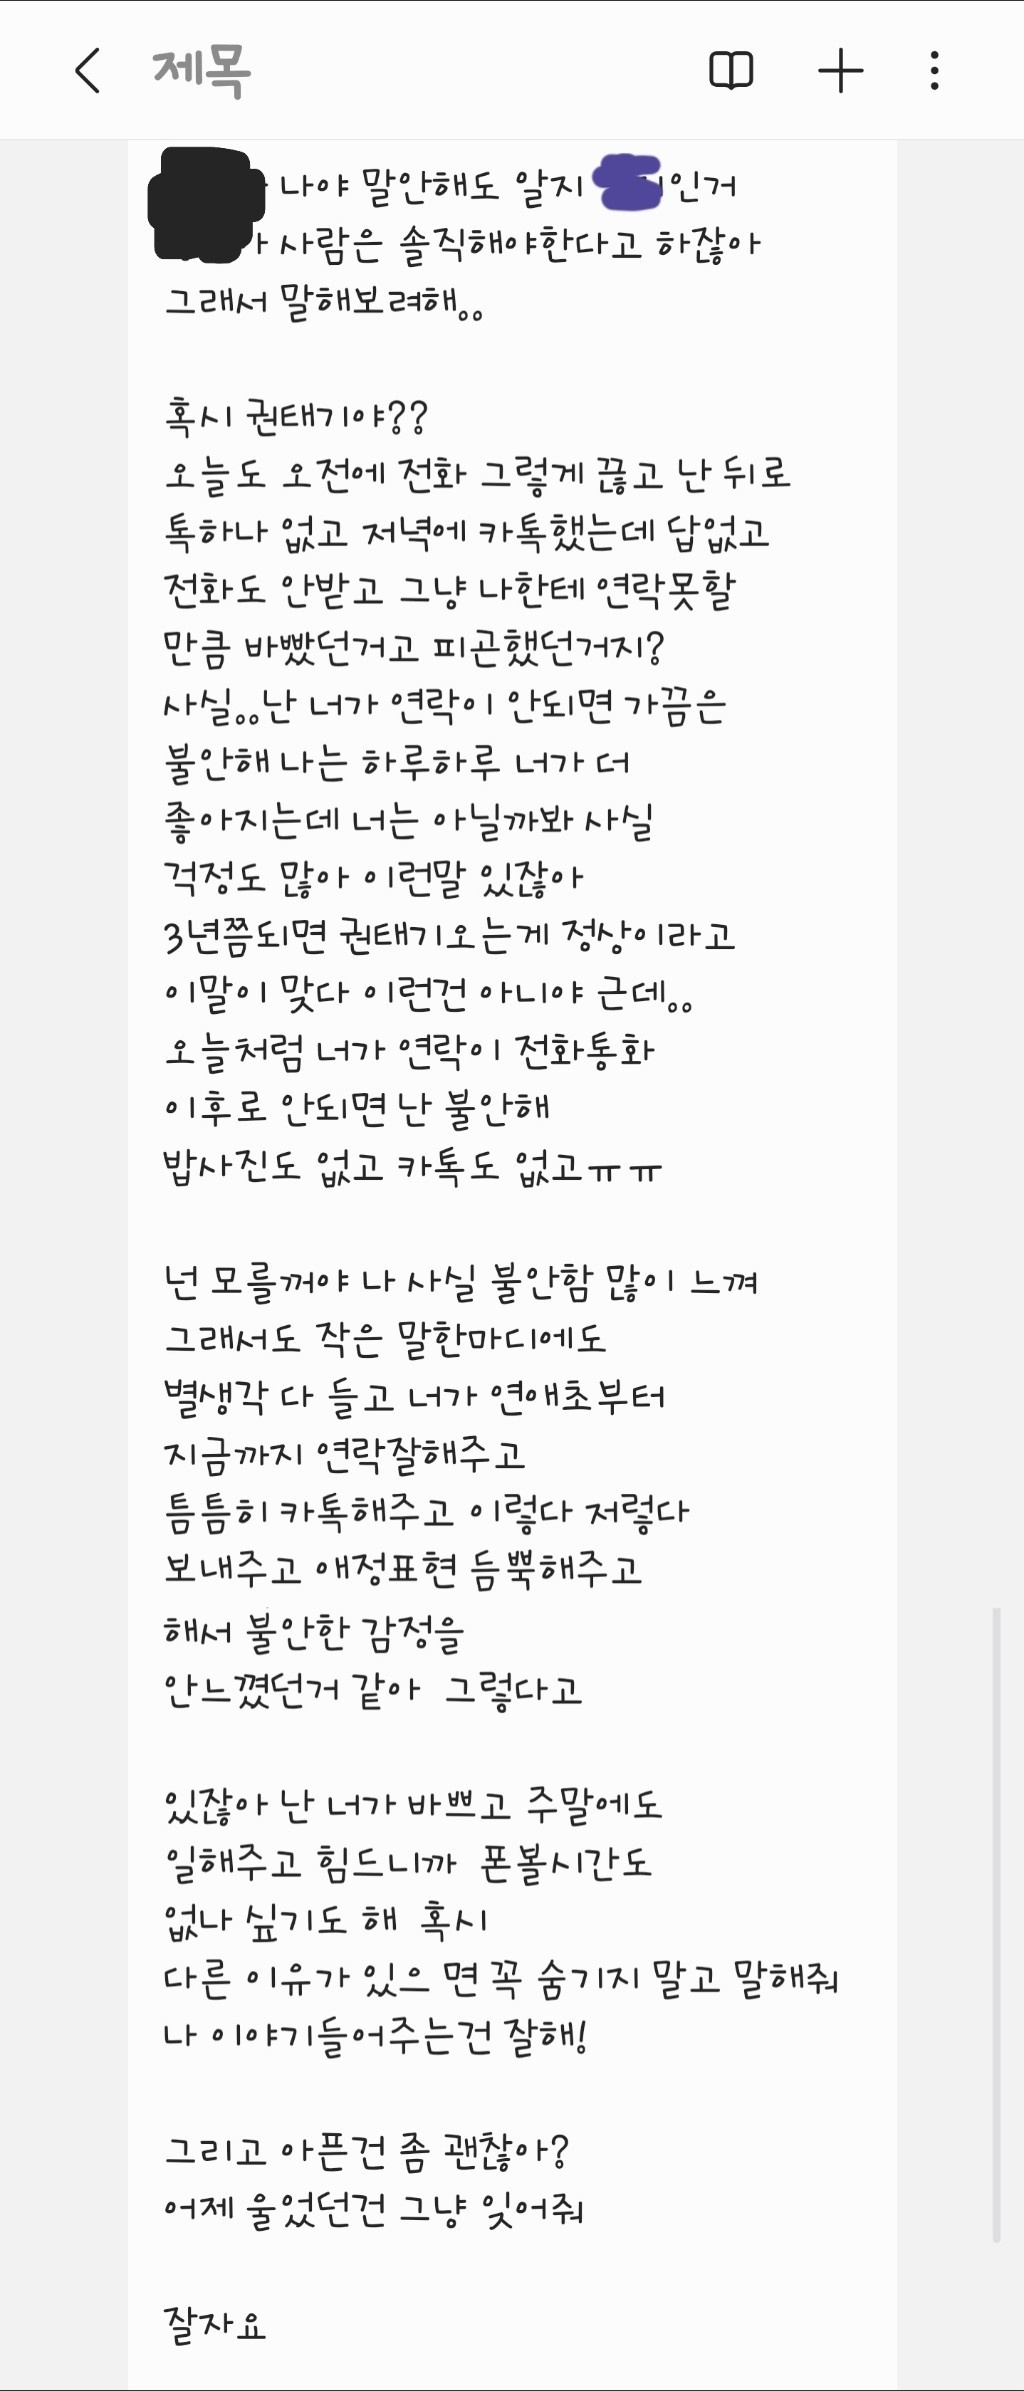 제목
나야 말안해도 알지 인거
사람은 솔직해야한다고 하잖아
그래서 말해보려해..
혹시 권태기야??
오늘도 오전에 전화 그렇게 끊고 난 뒤로
톡하나 없고 저녁에 카톡했는데 답없고
전화도 안받고 그냥 나한테 연락못할
만큼 바빴던거고 피곤했던거지?
사실..난 너가 연락이 안되면 가끔은
불안해 나는 하루하루 너가 더
좋아지는데 너는 아닐까봐 사실
걱정도 많아 이런말 있잖아
3년쯤되면 권태기오는게 정상이라고
이말이 맞다 이런건 아니야 근데..
오늘처럼 너가 연락이 전화통화
이후로 안되면 난 불안해
밥사진도 없고 카톡도 없고ㅠㅠ
넌 모를꺼야 나 사실 불안함 많이 느껴
그래서도 작은 말한마디에도
별생각 다 들고 너가 연애초부터
지금까지 연락잘해주고
틈틈히 카톡해주고 이렇다 저렇다
보내주고 애정표현 듬뿍해주고
해서 불안한 감정을
안느꼈던거 같아 그렇다고
있잖아 난 너가 바쁘고 주말에도
일해주고 힘드니까 폰볼시간도
없나 싶기도 해 혹시
다른 이유가 있으면 꼭 숨기지 말고 말해줘
나 이야기들어주는건 잘해!
그리고 아픈건 좀 괜찮아?
어제 울었던건 그냥 잊어줘
잘자요